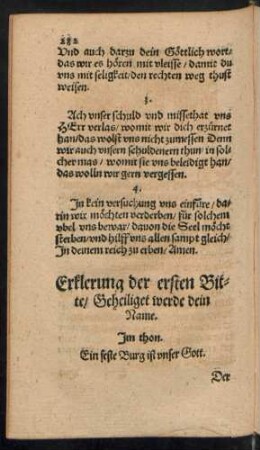 282
Vnd auch darzu dein Göttlich wort/
das wir es hören mit vleisse/ damit du
vns mit seligkeit/ den rechten weg thust
weisen.
3.
Ach vnser schuld vnd missethat vns
HErr verlas/ womit wir dich erzürnet
han/ das wolst vns nicht zumessen Denn
wir auch vnsern schuldenern thun in sol-
cher mas/ womit sie vns beleidigt han/
das wolln wir gern vergessen.
4.
In kein versuchung vns einfüre/ da-
rin wir möchten verderben/ für solchem
vbel vns bewar/ dauon die Seel möcht
sterben/ vnd hilff vns allen sampt gleich/
In deinem reich zu erben/ Amen.
Erklerung der ersten Bit-
te/ Geheiliget werde dein
Name.
Im thon.
Ein feste Burg ist vnser Gott.
Der